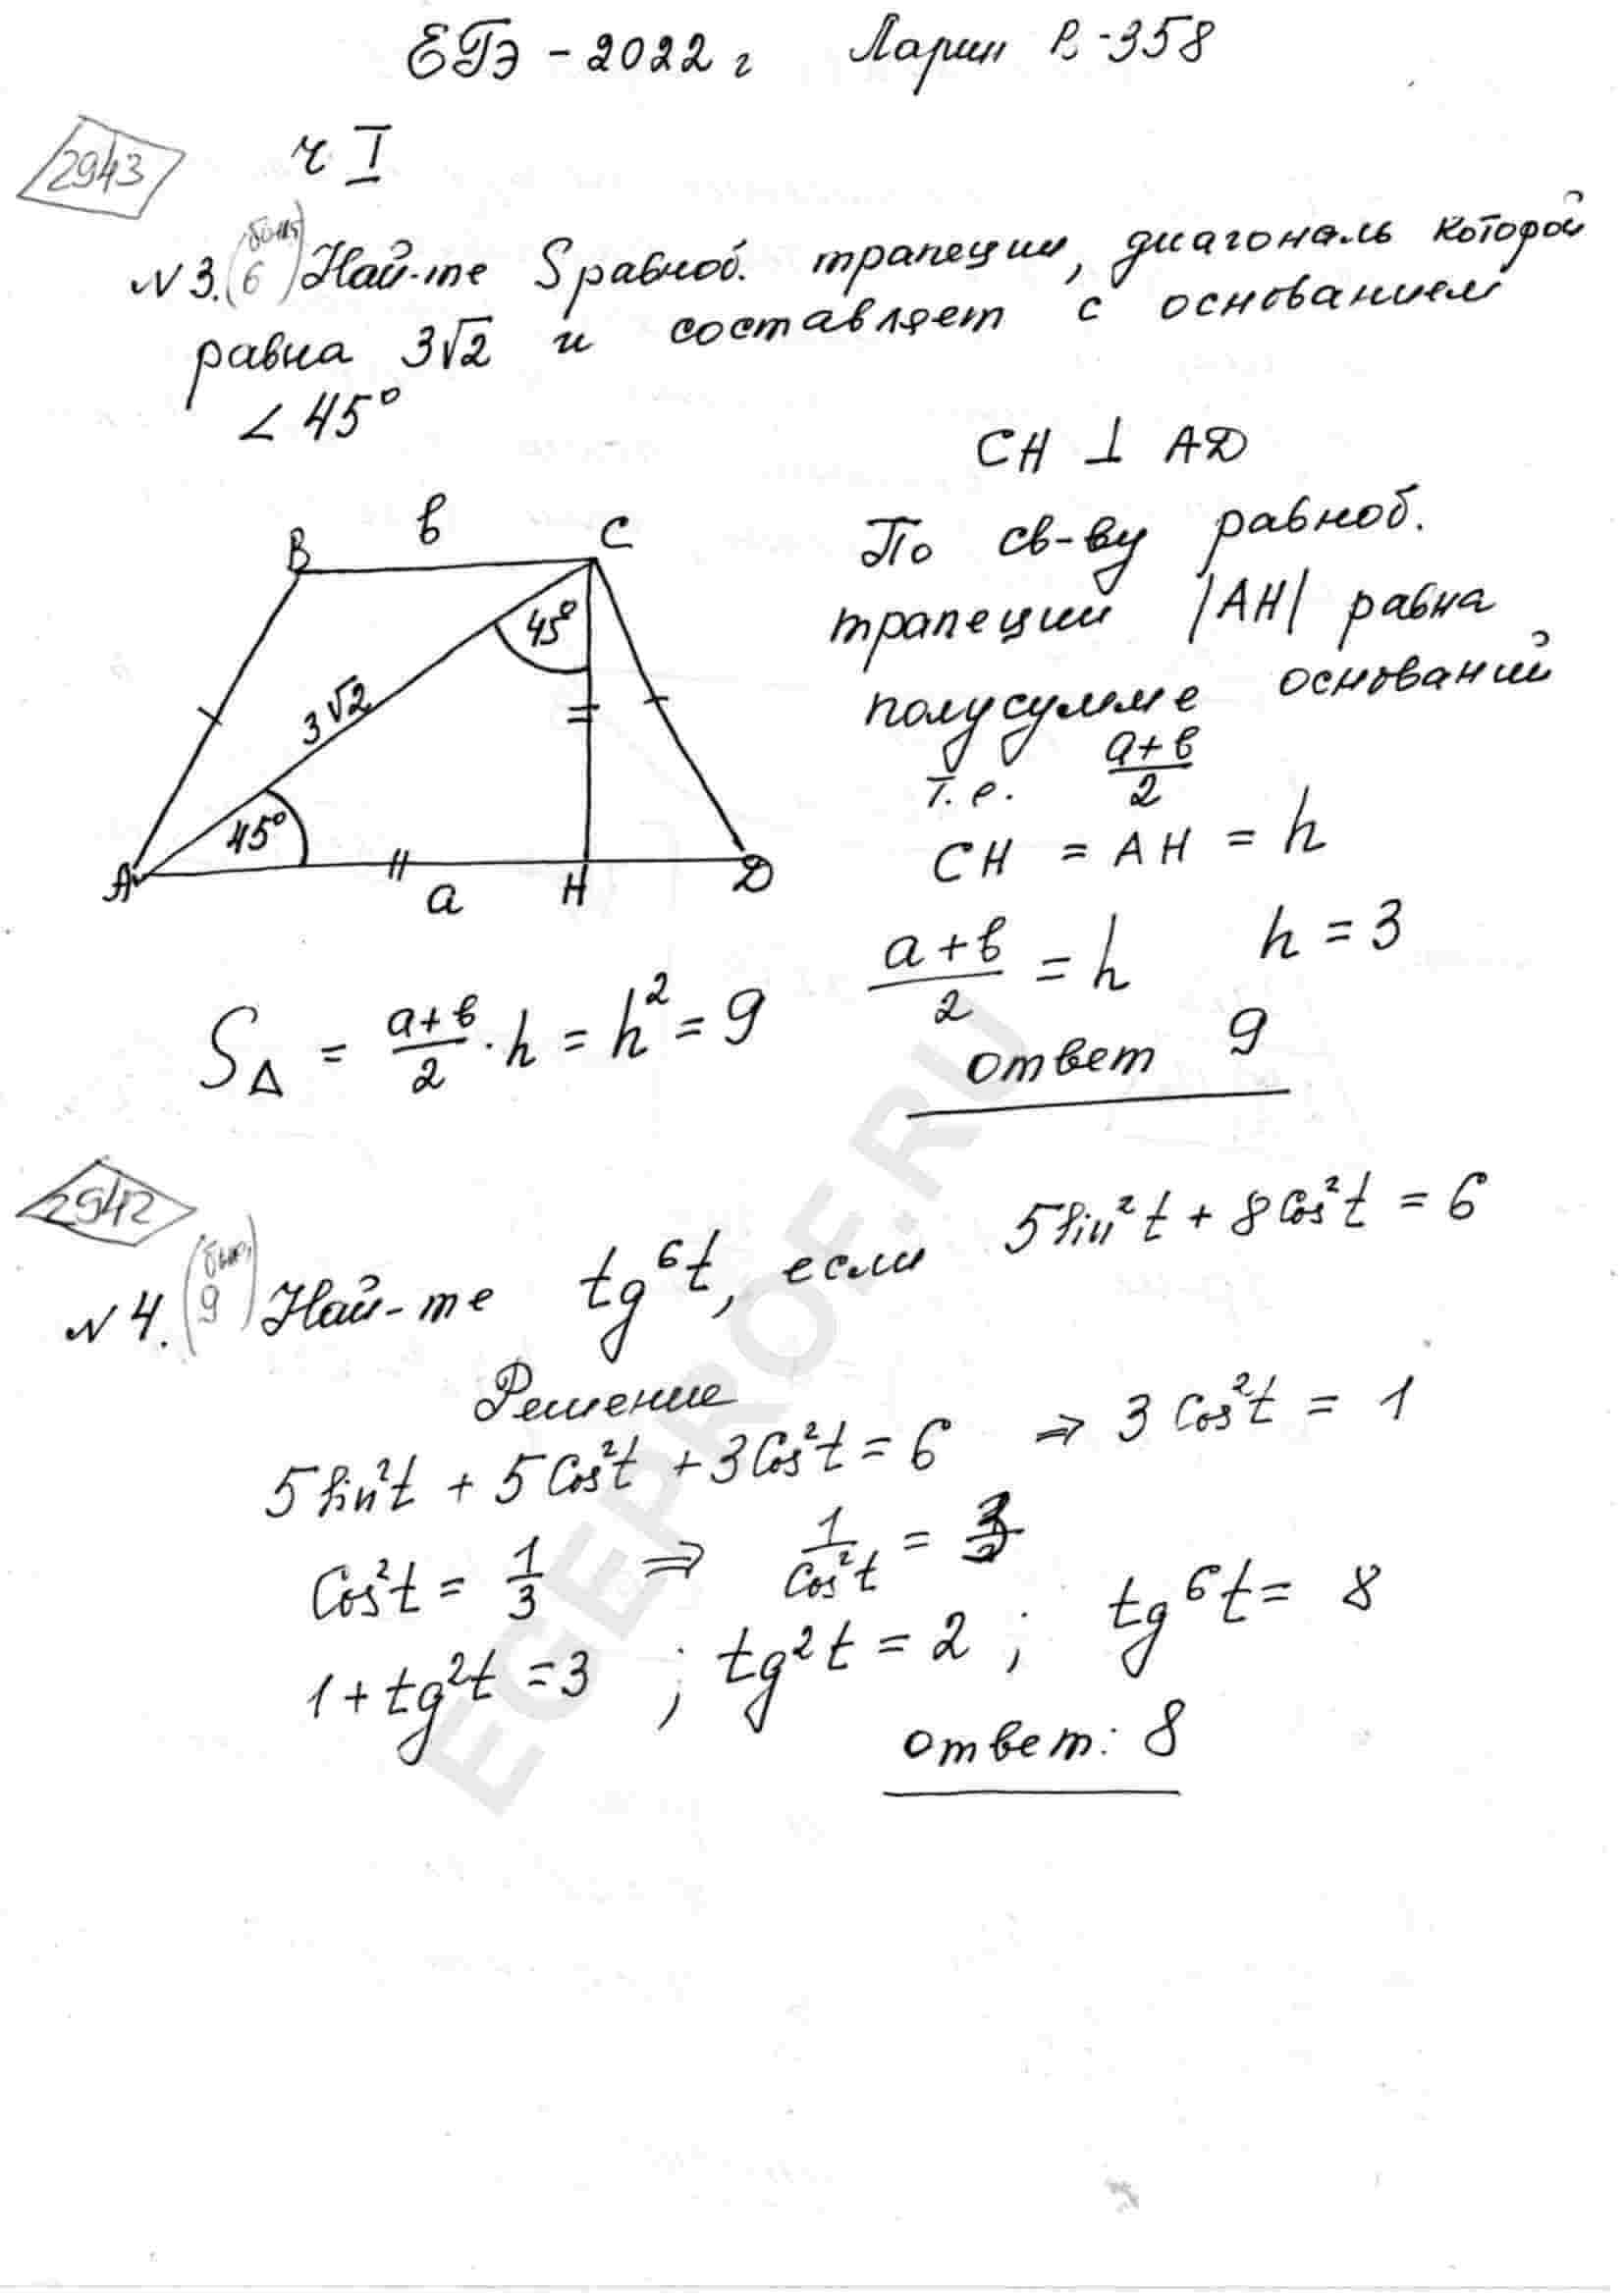 ЕГЭ - 2022 г Ларин В-358
2943
ч I
№3. (6) Най-те S равноб. трапеции, диагональ которой
равна 3√2 и составляет с основанием
∠ 45°
CH ⊥ AD
По св-ву равноб.
трапеции |AH| равна
полусумме оснований
т.е. (a+в)/2
CH = AH = h
(a+в)/2 = h h = 3
ответ 9
B в C
3√2 45°
45°
A a H D
S△ = (a+в)/2 · h = h² = 9
2942
№4. (9) Най-те tg⁶t, если 5sin²t + 8cos²t = 6
Решение
5sin²t + 5cos²t + 3cos²t = 6 ⇒ 3cos²t = 1
cos²t = 1/3 ⇒ 1/cos²t = 3
1 + tg²t = 3 ; tg²t = 2 ; tg⁶t = 8
ответ: 8
EGEPROF.RU